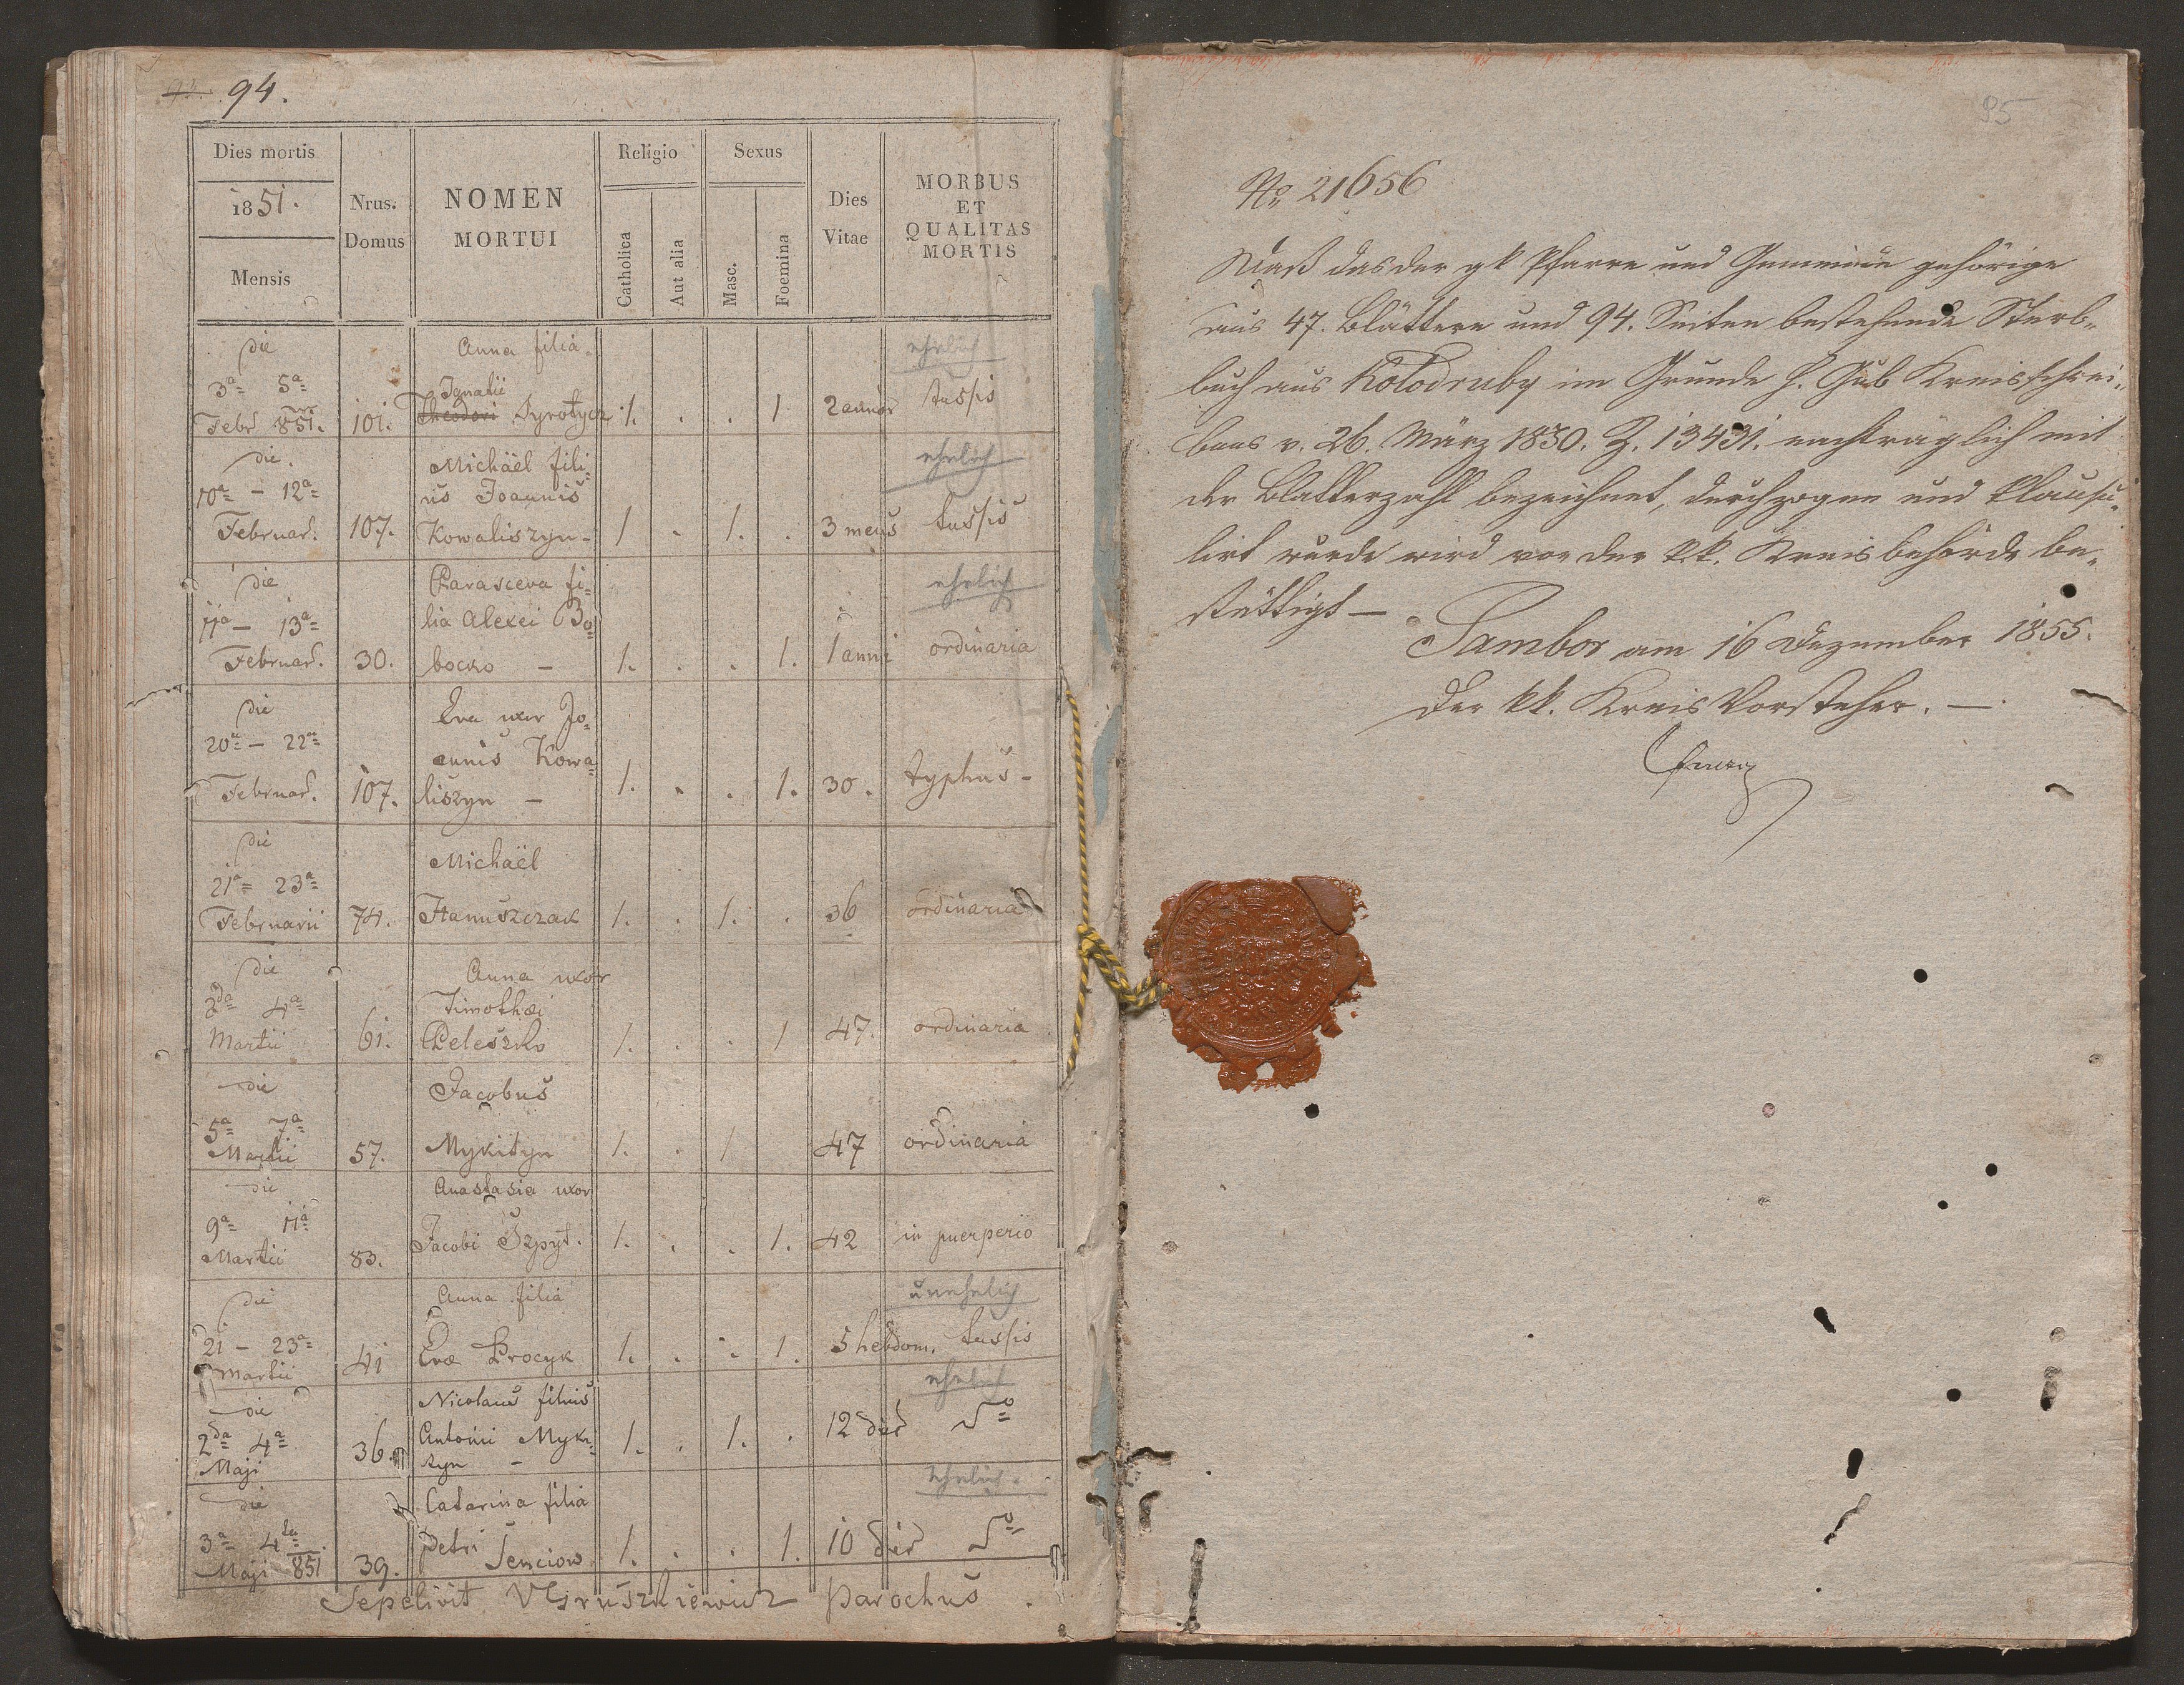 94.
Dies mortis
1851.
Mensis
Nrus.
Domus
NOMEN
MORTUI
Religio
Catholica
Aut alia
Sexus
Masc.
Foemina
Dies
Vitae
MORBUS
ET
QUALITAS
MORTIS
die Anna filia ehelich
3a 5a Ignatii
Febr 851. 101. Theodori Syrotycz 1. . . 1 2 annor tussis
die Michäel fili= ehelich
10a - 12a us Joannis
Februar. 107. Kowaliszyn - 1 . 1. . 3 mens tussis
die Parasceva fi= ehelich
11a - 13a lia Alexei Bo=
Februar. 30. bocko - 1. . . 1. 1 anni ordinaria
die Eva uxor Jo=
20a - 22a annis Kowa=
Februar. 107. liszyn - 1. . . 1. 30. typhus -
die Michaël
21a 23a
Februarii 74. Hanuszczak 1. . 1. . 36 ordinaria
die Anna uxor
2da 4a Timothæi
Martii 61. Peleszko 1. . . 1 47. ordinaria
die Jacobus
5a 7a
Martii 57. Mykityn 1. . 1 47 ordinaria
die Anastasia uxor
9a 11a
Martii 83. Jacobi Szpyt. 1. . . 1. 42 in puerperio
die Anna filia unehelich
21 - 23a
Martii 41 Evæ Procyk 1. . . 1. 5 hebdom. tussis
die Nicolaus filius ehelich
2da 4a Antonii Myki=
Maji 36. tyn - 1. . 1. . 12 die do
die Catarina filia ehelich
3a 4ta
Maji 851 39. Petri Senciow 1. . . 1. 10 die do
Sepelivit VGruszkiewicz parochus.
95
No 21656
Daß das der gk Pfarre und Gemeinde gehörige
aus 47. Blättern und 94. Seiten bestehende Sterb-
buch aus Kołodruby im Grunde h. Gub Kreisschrei-
bens v. 26. März 1830. Z. 13431. nachträglich mit
der Blatterzahl bezeichnet, durchzogen und klausu-
lirt wurde wird von der k.k. Kreisbehörde be-
stättigt —
Sambor am 16 Dezember 1855.
Der kk. Kreis Vorsteher. —